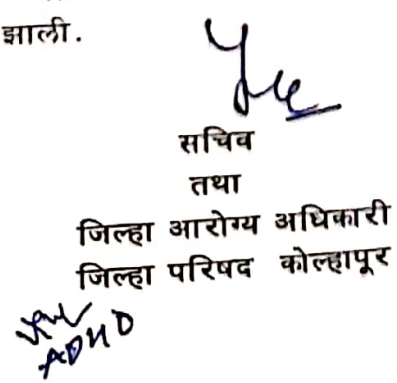 झाली.
सचिव
तथा
जिल्हा आरोग्य अधिकारी
जिल्हा परिषद कोल्हापूर
ADHO